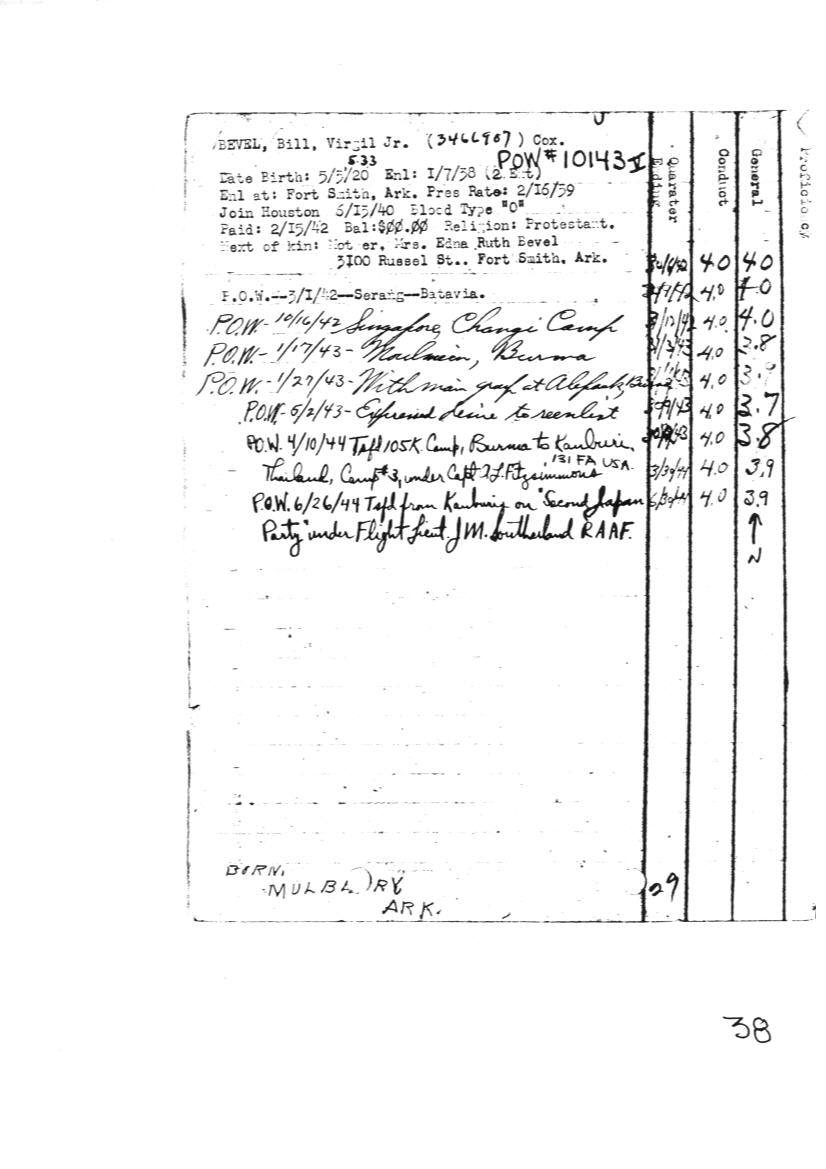 BEVEL, Bill, Virgil Jr. (3466907) Cox.
5.33 POW# 10143 V
Date Birth: 5/5/20 Enl: 1/7/38 (2 Ext)
Enl at: Fort Smith, Ark. Pres Rate: 2/16/39
Join Houston 6/15/40 Blood Type "O"
Paid: 2/15/42 Bal:$00.00 Religion: Protestant.
Next of kin: Mother, Mrs. Edna Ruth Bevel
3100 Russel St.. Fort Smith, Ark.
P.O.W.--3/1/42--Serang--Batavia.
P.O.W- 10/16/42 Singapore, Changi Camp
P.O.W- 1/17/43- Moulmein, Burma
P.O.W.- 1/27/43- With main group at Burma
P.O.W- 5/2/43- Expressed desire to reenlist
P.O.W. 4/10/44 Tsfd 105K. Camp, Burma to Kanburi,
Thailand, Camp #3, under Capt. Fitzsimmons 131 FA USA.
P.O.W. 6/26/44 Tsfd from Kanburig on "Second Japan
Party" under Flight Lieut. J M. Southerland RAAF.
Quarater
Conduct
General
Proficiency
4.0 4.0
4.0
4.0 4.0
4.0 3.8
4.0
4.0 3.7
4.0 3.8
4.0 3.9
4.0 3.9
N
BORN.
ARK.
29
38